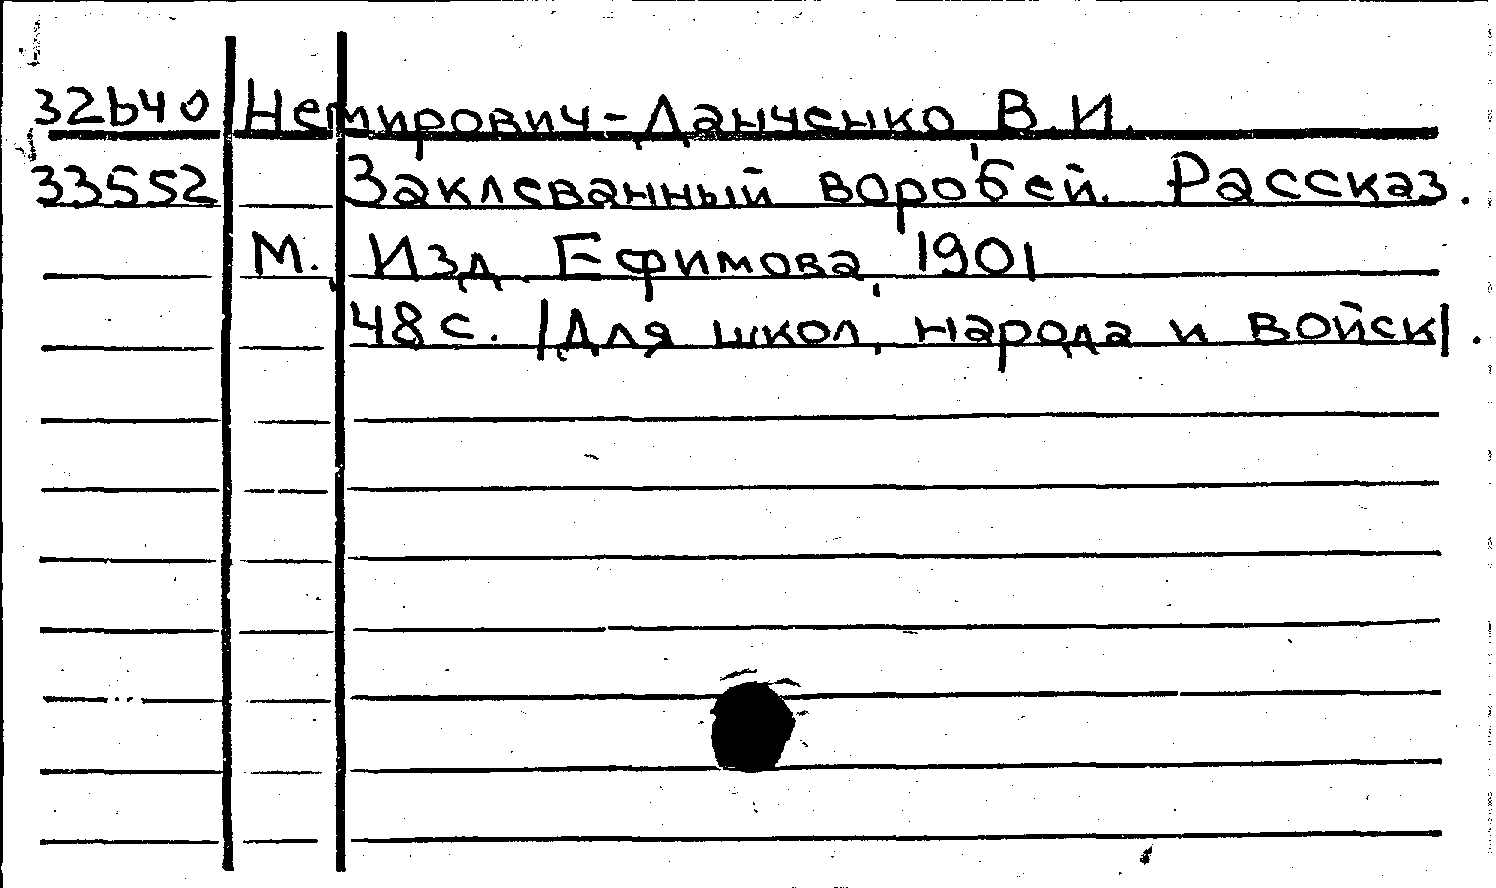 32640 Немирович-Данченко В.И.
33552 Заклеванный воробей. Рассказ.
М. Изд. Ефимова, 1901
48 с. /Для школ, народа и войск/.